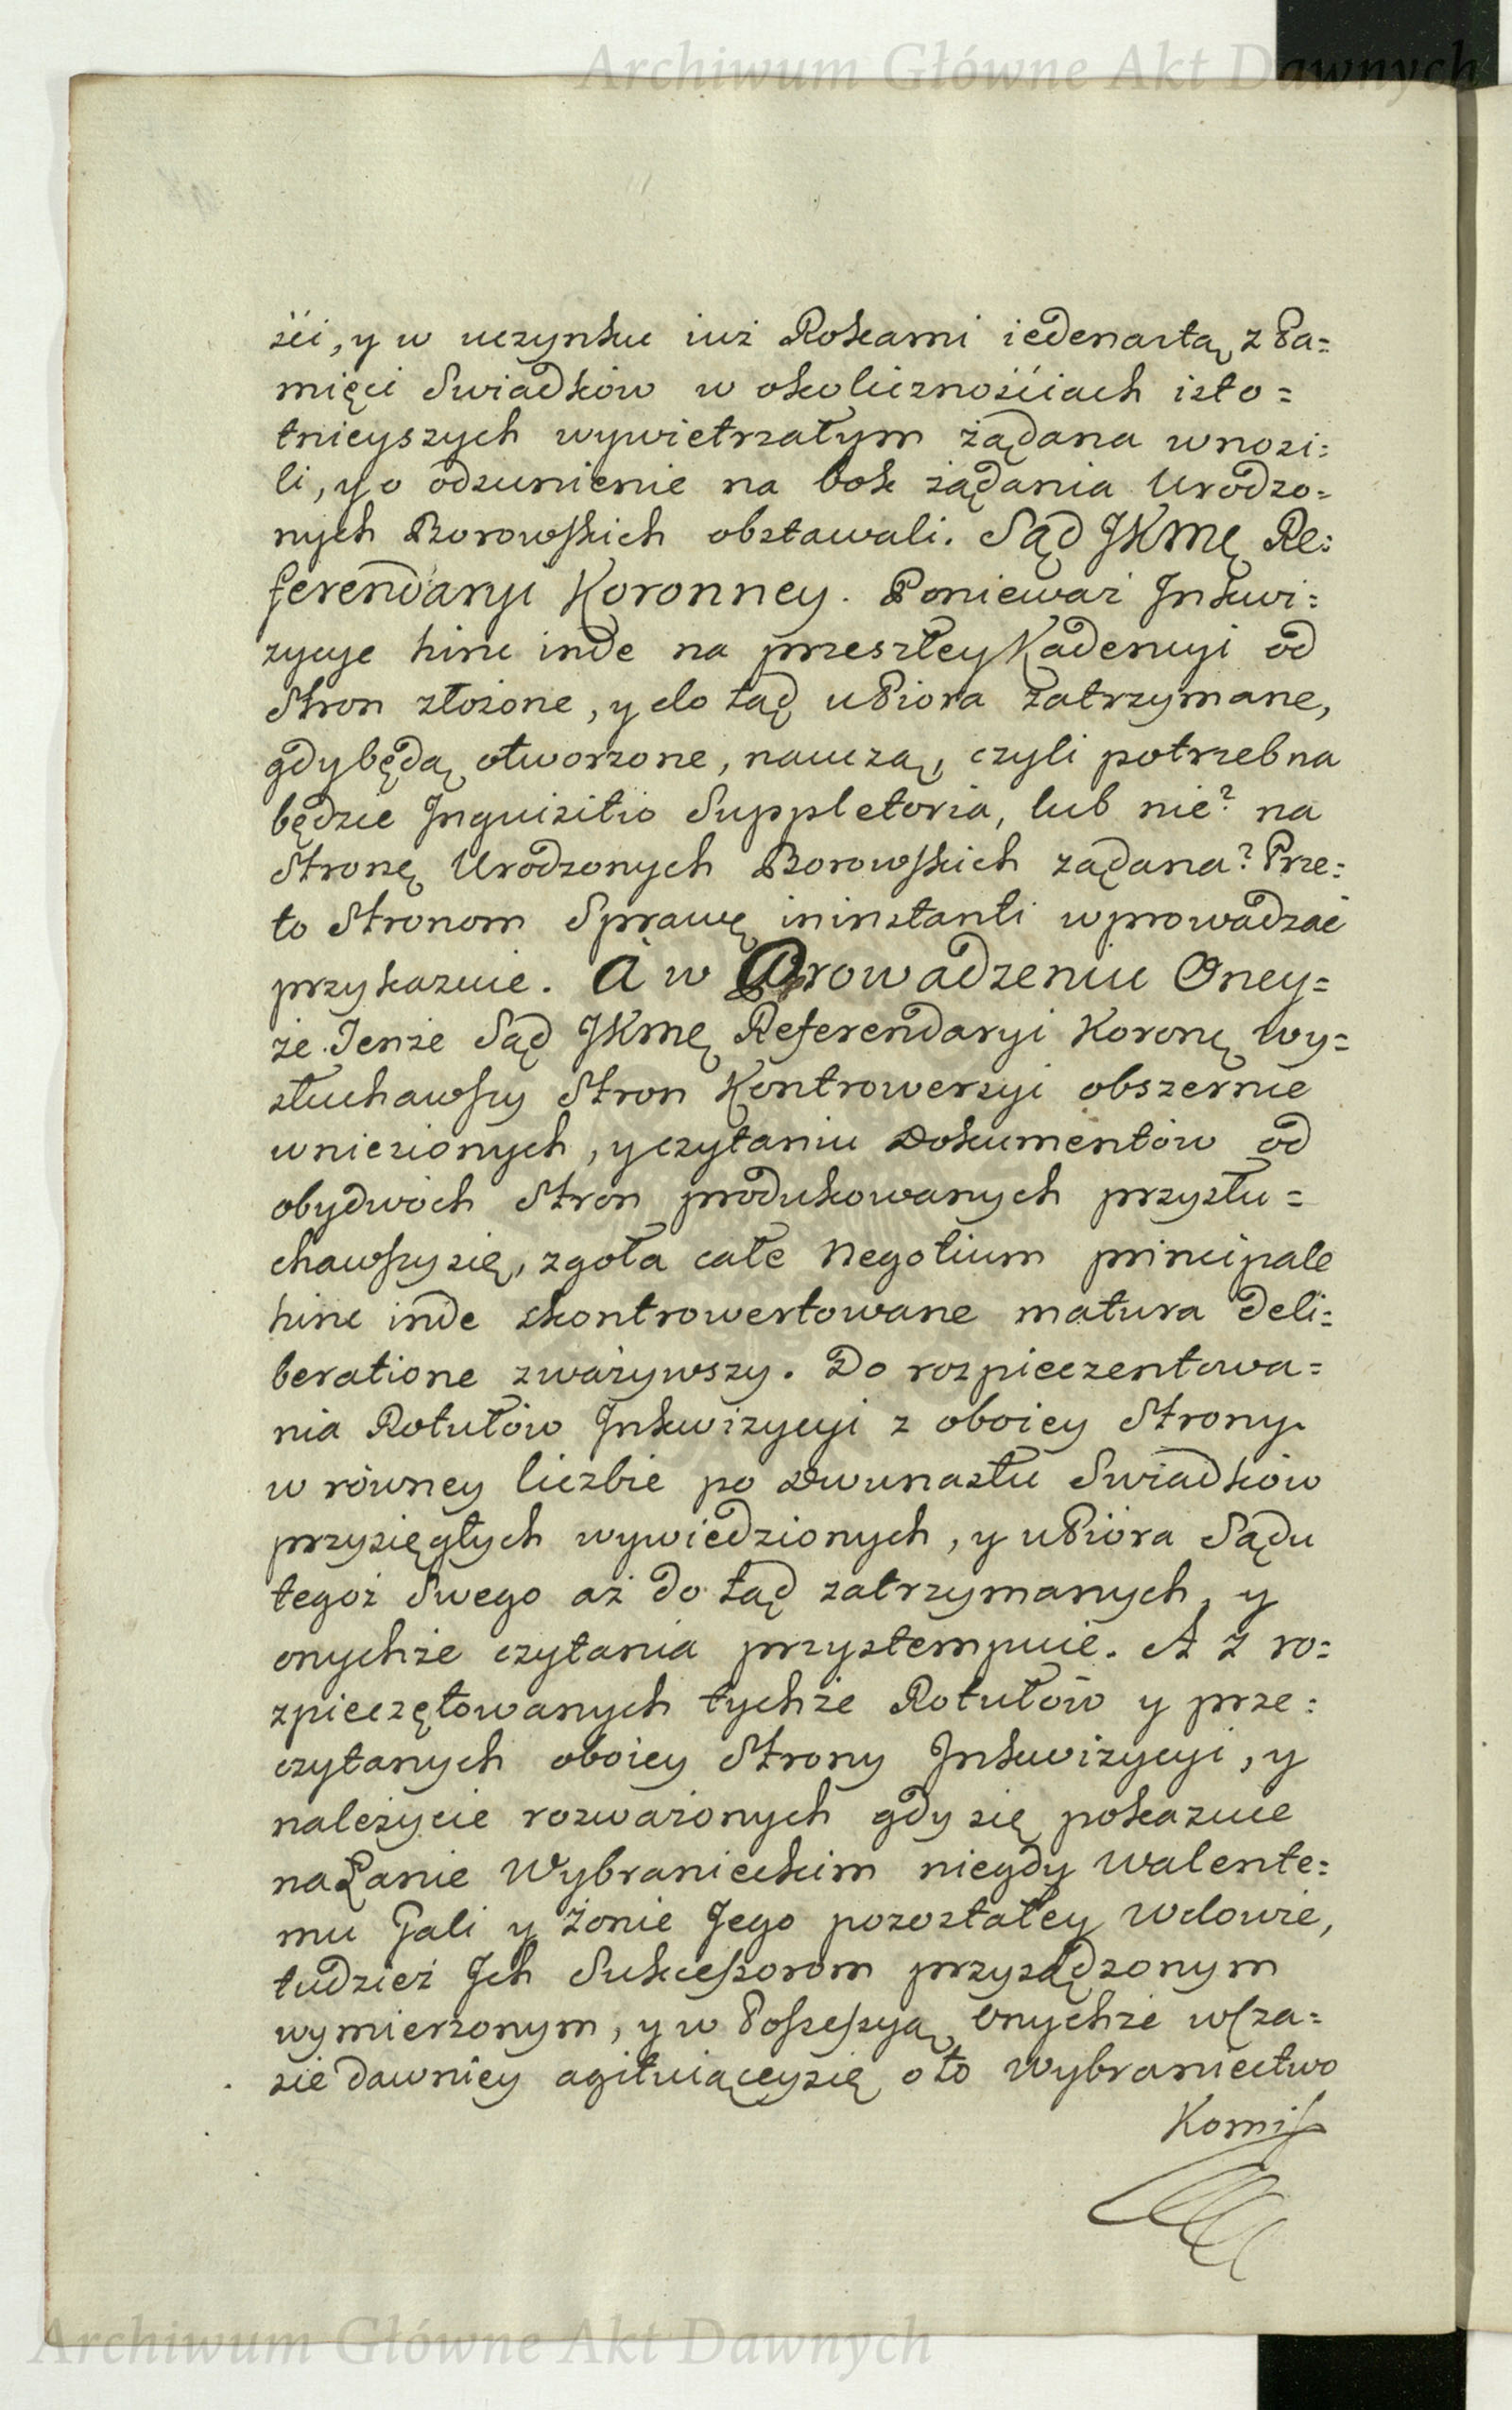 Archiwum Główne Akt Dawnych
ści, y w uczynku iuż Rokami iedenastą z Pa=
mięci Swiadków w okolicznościach isto=
tnieyszych wywietrzałym żądana wnosi=
li, y o odsunienie na bok żądania Urodzo=
nych Borowskich obstawali. Sąd JKMę Re=
ferendaryi Koronney. Ponieważ Inkwi=
zycye hinc inde na przeszłey Kadencyi od
Stron złożone, y do tąd u Pióra zatrzymane,
gdy będą otworzone, nauczą, czyli potrzebna
będzie Inquisitio Suppletoria, lub nie? na
Stronę Urodzonych Borowskich żądana? Prze=
to Stronom Sprawę in instanti wprowadzać
przykazuie. A w Prowadzeniu Oney=
że Tenże Sąd JKMę Referendaryi Koronę wy=
słuchawszy Stron Kontrowersyi obszernie
wniesionych, y czytaniu Dokumentów od
obydwóch Stron produkowanych przysłu=
chawszy się, zgoła całe Negotium principale
hinc inde skontrowertowane matura deli=
beratione zważywszy. Do rozpieczentowa=
nia Rotułów Inkwizycyi z oboiey Strony
w równey liczbie po Dwunastu Swiadków
przysięgłych wywiedzionych, y u Pióra Sądu
tegoż Swego aż do tąd zatrzymanych, y
onychże czytania przystempuie. A z ro=
zpieczętowanych tychże Rotułów y prze=
czytanych oboiey Strony Inkwizycyi, y
należycie rozważonych gdy się pokazuie
na Łanie Wybranieckim niegdy Walente=
mu Gali y Żonie Jego pozostałey Wdowie,
tudzież Ich Sukcessorom przysądzonym
wymierzonym, y w Possessyą onychże w cza=
sie dawniey agituiącey się o to Wybraniectwo
Komiss
Archiwum Główne Akt Dawnych